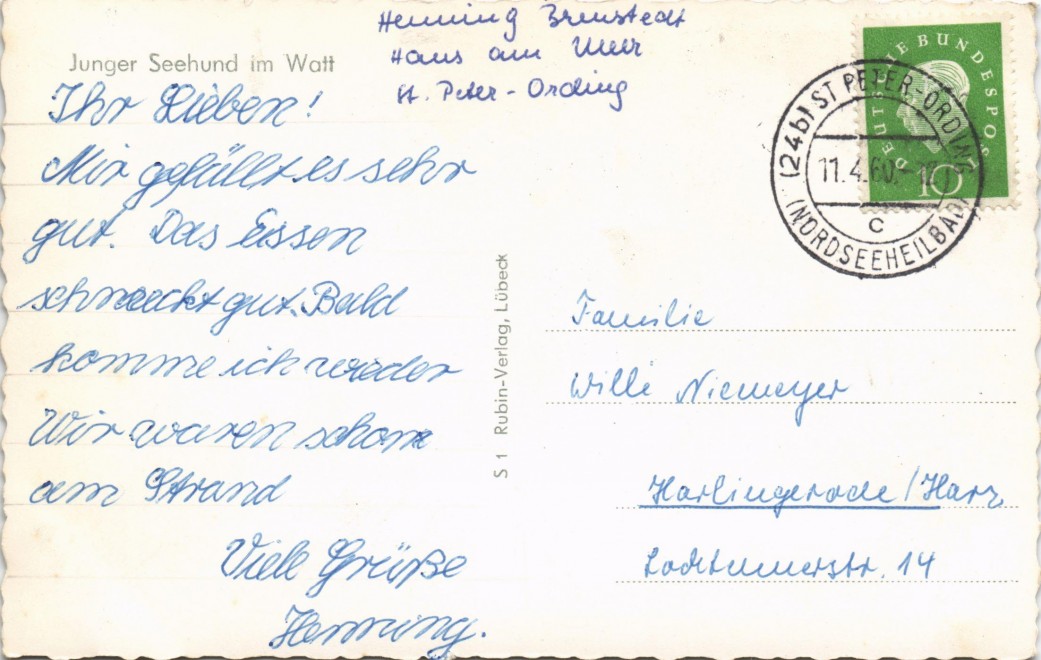 Henning Brunstedt
Haus am Meer
St. Peter-Ording
Junger Seehund im Watt
Ihr Lieben!
Mir gefüllt es sehr
gut. Das Essen
schmeckt gut. Bald
komme ich wieder
Wir waren schon
am Strand
Viele Grüße
Henning.
S 1 Rubin-Verlag, Lübeck
DEUTSCHE BUNDESPOST
10
(24b) ST PETER-ORDING
11.4.60.-12
c
(NORDSEEHEILBAD)
Familie
Willi Niemeyer
Harlingerode/Harz
14